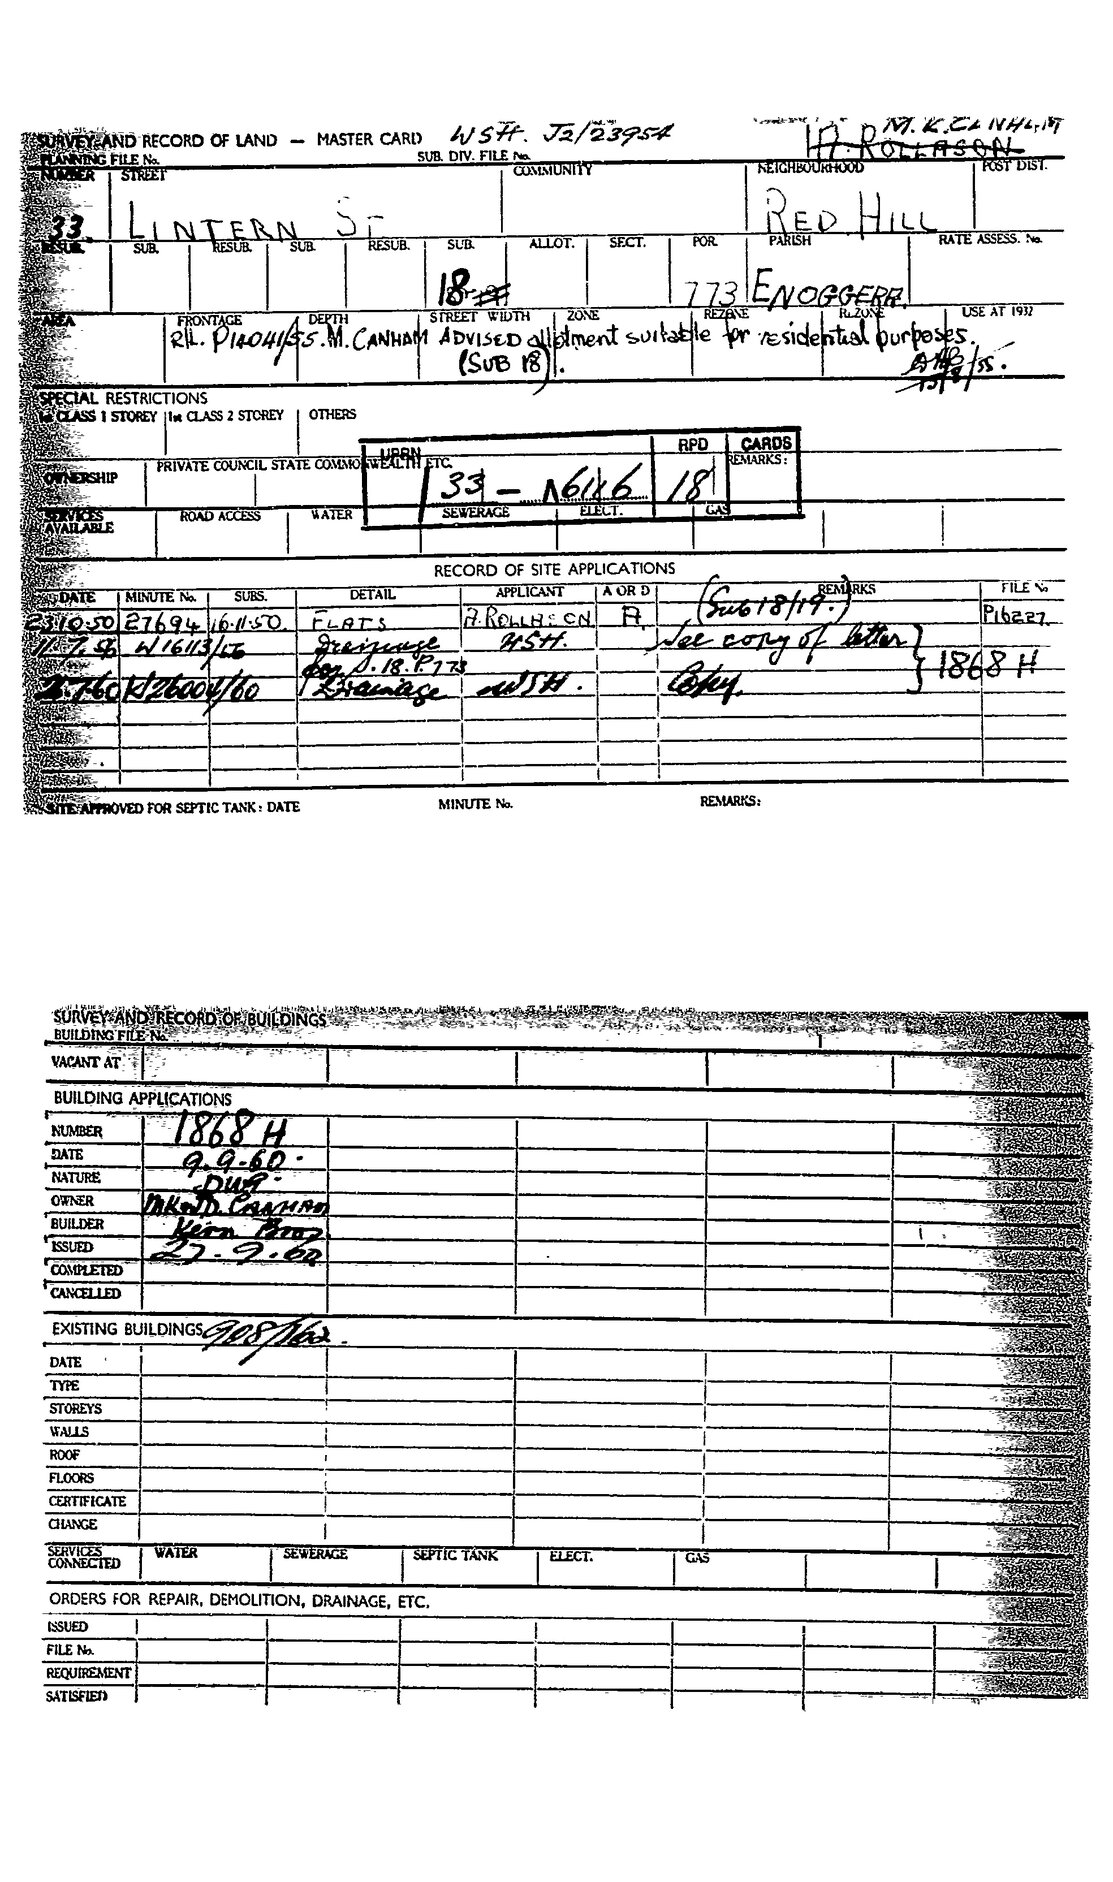 SURVEY AND RECORD OF LAND — MASTER CARD WSH. J2/23954 M.K.CANHAM
PLANNING FILE No. SUB. DIV. FILE No. A. ROLLASON
NUMBER STREET COMMUNITY NEIGHBOURHOOD POST DIST.
33 LINTERN ST RED HILL
RESUB. SUB. RESUB. SUB. RESUB. SUB. ALLOT. SECT. POR. PARISH RATE ASSESS. No.
18 773 ENOGGERA
AREA FRONTAGE DEPTH STREET WIDTH ZONE REZONE REZONE USE AT 1932
R/L. P14041/55. M. CANHAM ADVISED allotment suitable for residential purposes.
(SUB 18).
SPECIAL RESTRICTIONS
1st CLASS 1 STOREY 1st CLASS 2 STOREY OTHERS
UPRN RPD CARDS
OWNERSHIP PRIVATE COUNCIL STATE COMMONWEALTH ETC. REMARKS:
33 — 18
SERVICES AVAILABLE ROAD ACCESS WATER SEWERAGE ELECT. GAS
RECORD OF SITE APPLICATIONS
DATE MINUTE No. SUBS. DETAIL APPLICANT A OR D REMARKS FILE No
23.10.50 27694 16.11.50. FLATS A. ROLLASON A. (Sub 18/19.) P16227
11.7.56 W16113/56 Drainage WSH. See copy of letter
S.18.P.773 1868 H
K/26004/60 Drainage WSH. Copy.
SITE APPROVED FOR SEPTIC TANK: DATE MINUTE No. REMARKS:
SURVEY AND RECORD OF BUILDINGS
BUILDING FILE No.
VACANT AT
BUILDING APPLICATIONS
NUMBER 1868 H
DATE 9.9.60.
NATURE DWG.
OWNER CANHAM
BUILDER Kern Bros
ISSUED 27.9.60
COMPLETED
CANCELLED
EXISTING BUILDINGS
DATE
TYPE
STOREYS
WALLS
ROOF
FLOORS
CERTIFICATE
CHANGE
SERVICES CONNECTED WATER SEWERAGE SEPTIC TANK ELECT. GAS
ORDERS FOR REPAIR, DEMOLITION, DRAINAGE, ETC.
ISSUED
FILE No.
REQUIREMENT
SATISFIED